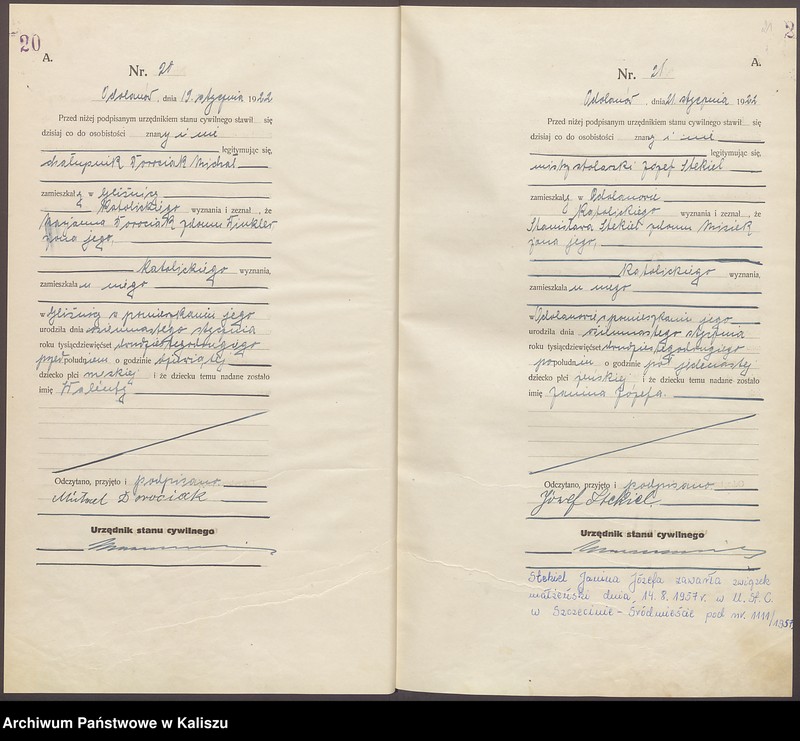 20
A.
Nr. 20
Odolanów, dnia 19. stycznia 1922
Przed niżej podpisanym urzędnikiem stanu cywilnego stawił się
dzisiaj co do osobistości znany i mi
legitymując się,
chałupnik Dorociak Michał
zamieszkały w Gliśnicy
Katolickiego wyznania i zeznał, że
Marjanna Dorociak zdomu Hinkler
żona jego,
Katolickiego wyznania,
zamieszkała u niego
w Gliśnicy w pomieszkaniu jego
urodziła dnia stycznia
roku tysiącdziewięćset dwudziestegodrugiego
przed południem o godzinie dziewiątej
dziecko płci męskiej i że dziecku temu nadane zostało
imię Walenty
Odczytano, przyjęto i podpisano
Michael Dorociak
Urzędnik stanu cywilnego
A.
Nr. 21
Odolanów, dnia 21 stycznia 1922
Przed niżej podpisanym urzędnikiem stanu cywilnego stawił się
dzisiaj co do osobistości znany i mi
legitymując się,
mistrz stolarski Józef Stekiel
zamieszkały w Odolanowie
Katolickiego wyznania i zeznał, że
Stanisława Stekiel zdomu Misiek
żona jego,
Katolickiego wyznania,
zamieszkała u niego
w Odolanowie w pomieszkaniu jego
urodziła dnia stycznia
roku tysiącdziewięćset dwudziestegodrugiego
popołudniu o godzinie pół jedenastej
dziecko płci żeńskiej i że dziecku temu nadane zostało
imię Janina Józefa.
Odczytano, przyjęto i podpisano
Józef Stekiel
Urzędnik stanu cywilnego
Stekiel Janina Józefa zawarła związek
małżeński dnia 14.8.1957 r. w U.S.C.
w Szczecinie-Śródmieście pod nr. 1111/1957
Archiwum Państwowe w Kaliszu